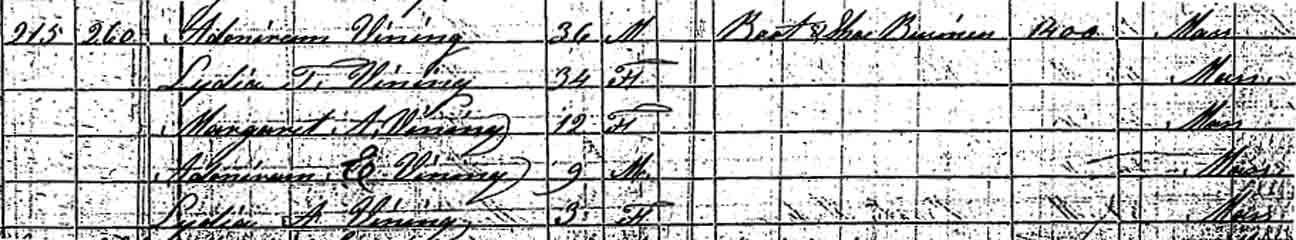 215 260 Adoniram Vining 36 M Boot & Shoe Business 1400 Mass
Lydia T. Vining 34 F Mass.
Margaret A. Vining 12 F Mass
Adoniram E. Vining 9 M. Mass
Lydia A Vining 3 F Mass